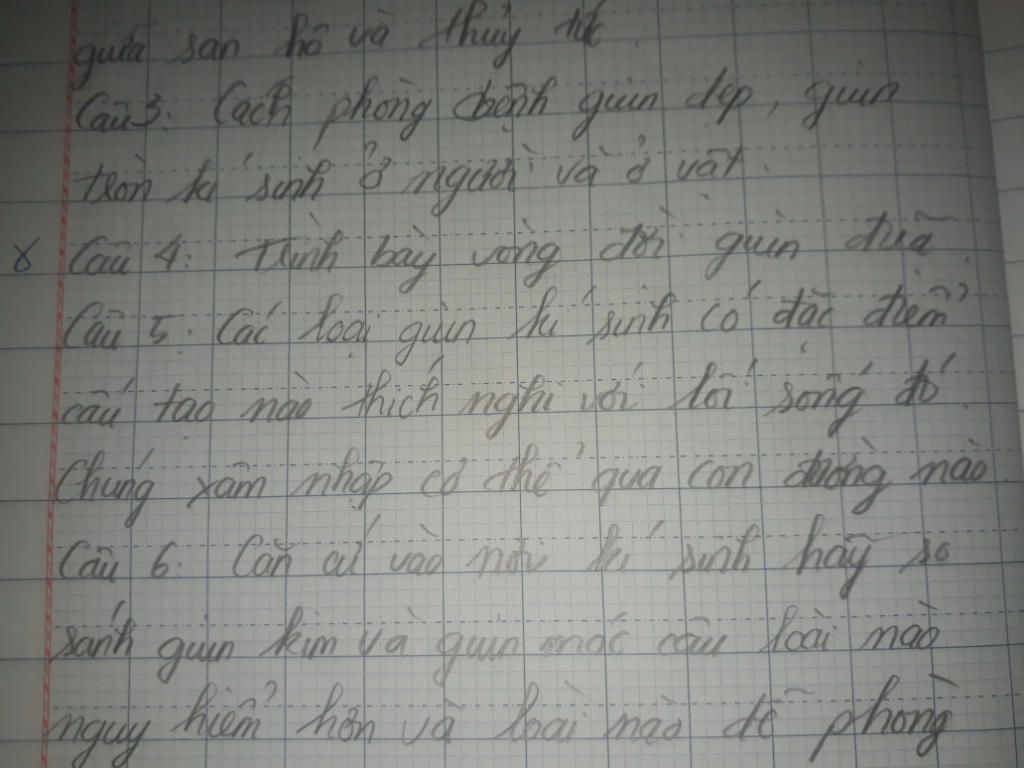 giữa san hô và thuỷ tức
Câu 3: Cách phòng bệnh giun dẹp, giun
tròn kí sinh ở người và ở vật.
Câu 4: Trình bày vòng đời giun đũa.
Câu 5: Các loại giun kí sinh có đặc điểm
cấu tạo nào thích nghi với lối sống đó.
Chúng xâm nhập cơ thể qua con đường nào.
Câu 6: Căn cứ vào nơi kí sinh hãy so
sánh giun kim và giun móc câu loài nào
nguy hiểm hơn và loài nào dễ phòng